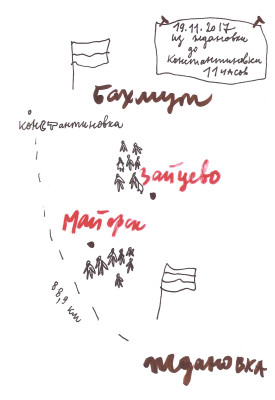 19.11.2017
из ждановки
до
константиновки
11 часов
Бахмут
константиновка
Зайцево
Майорск
88,9 км
ждановка